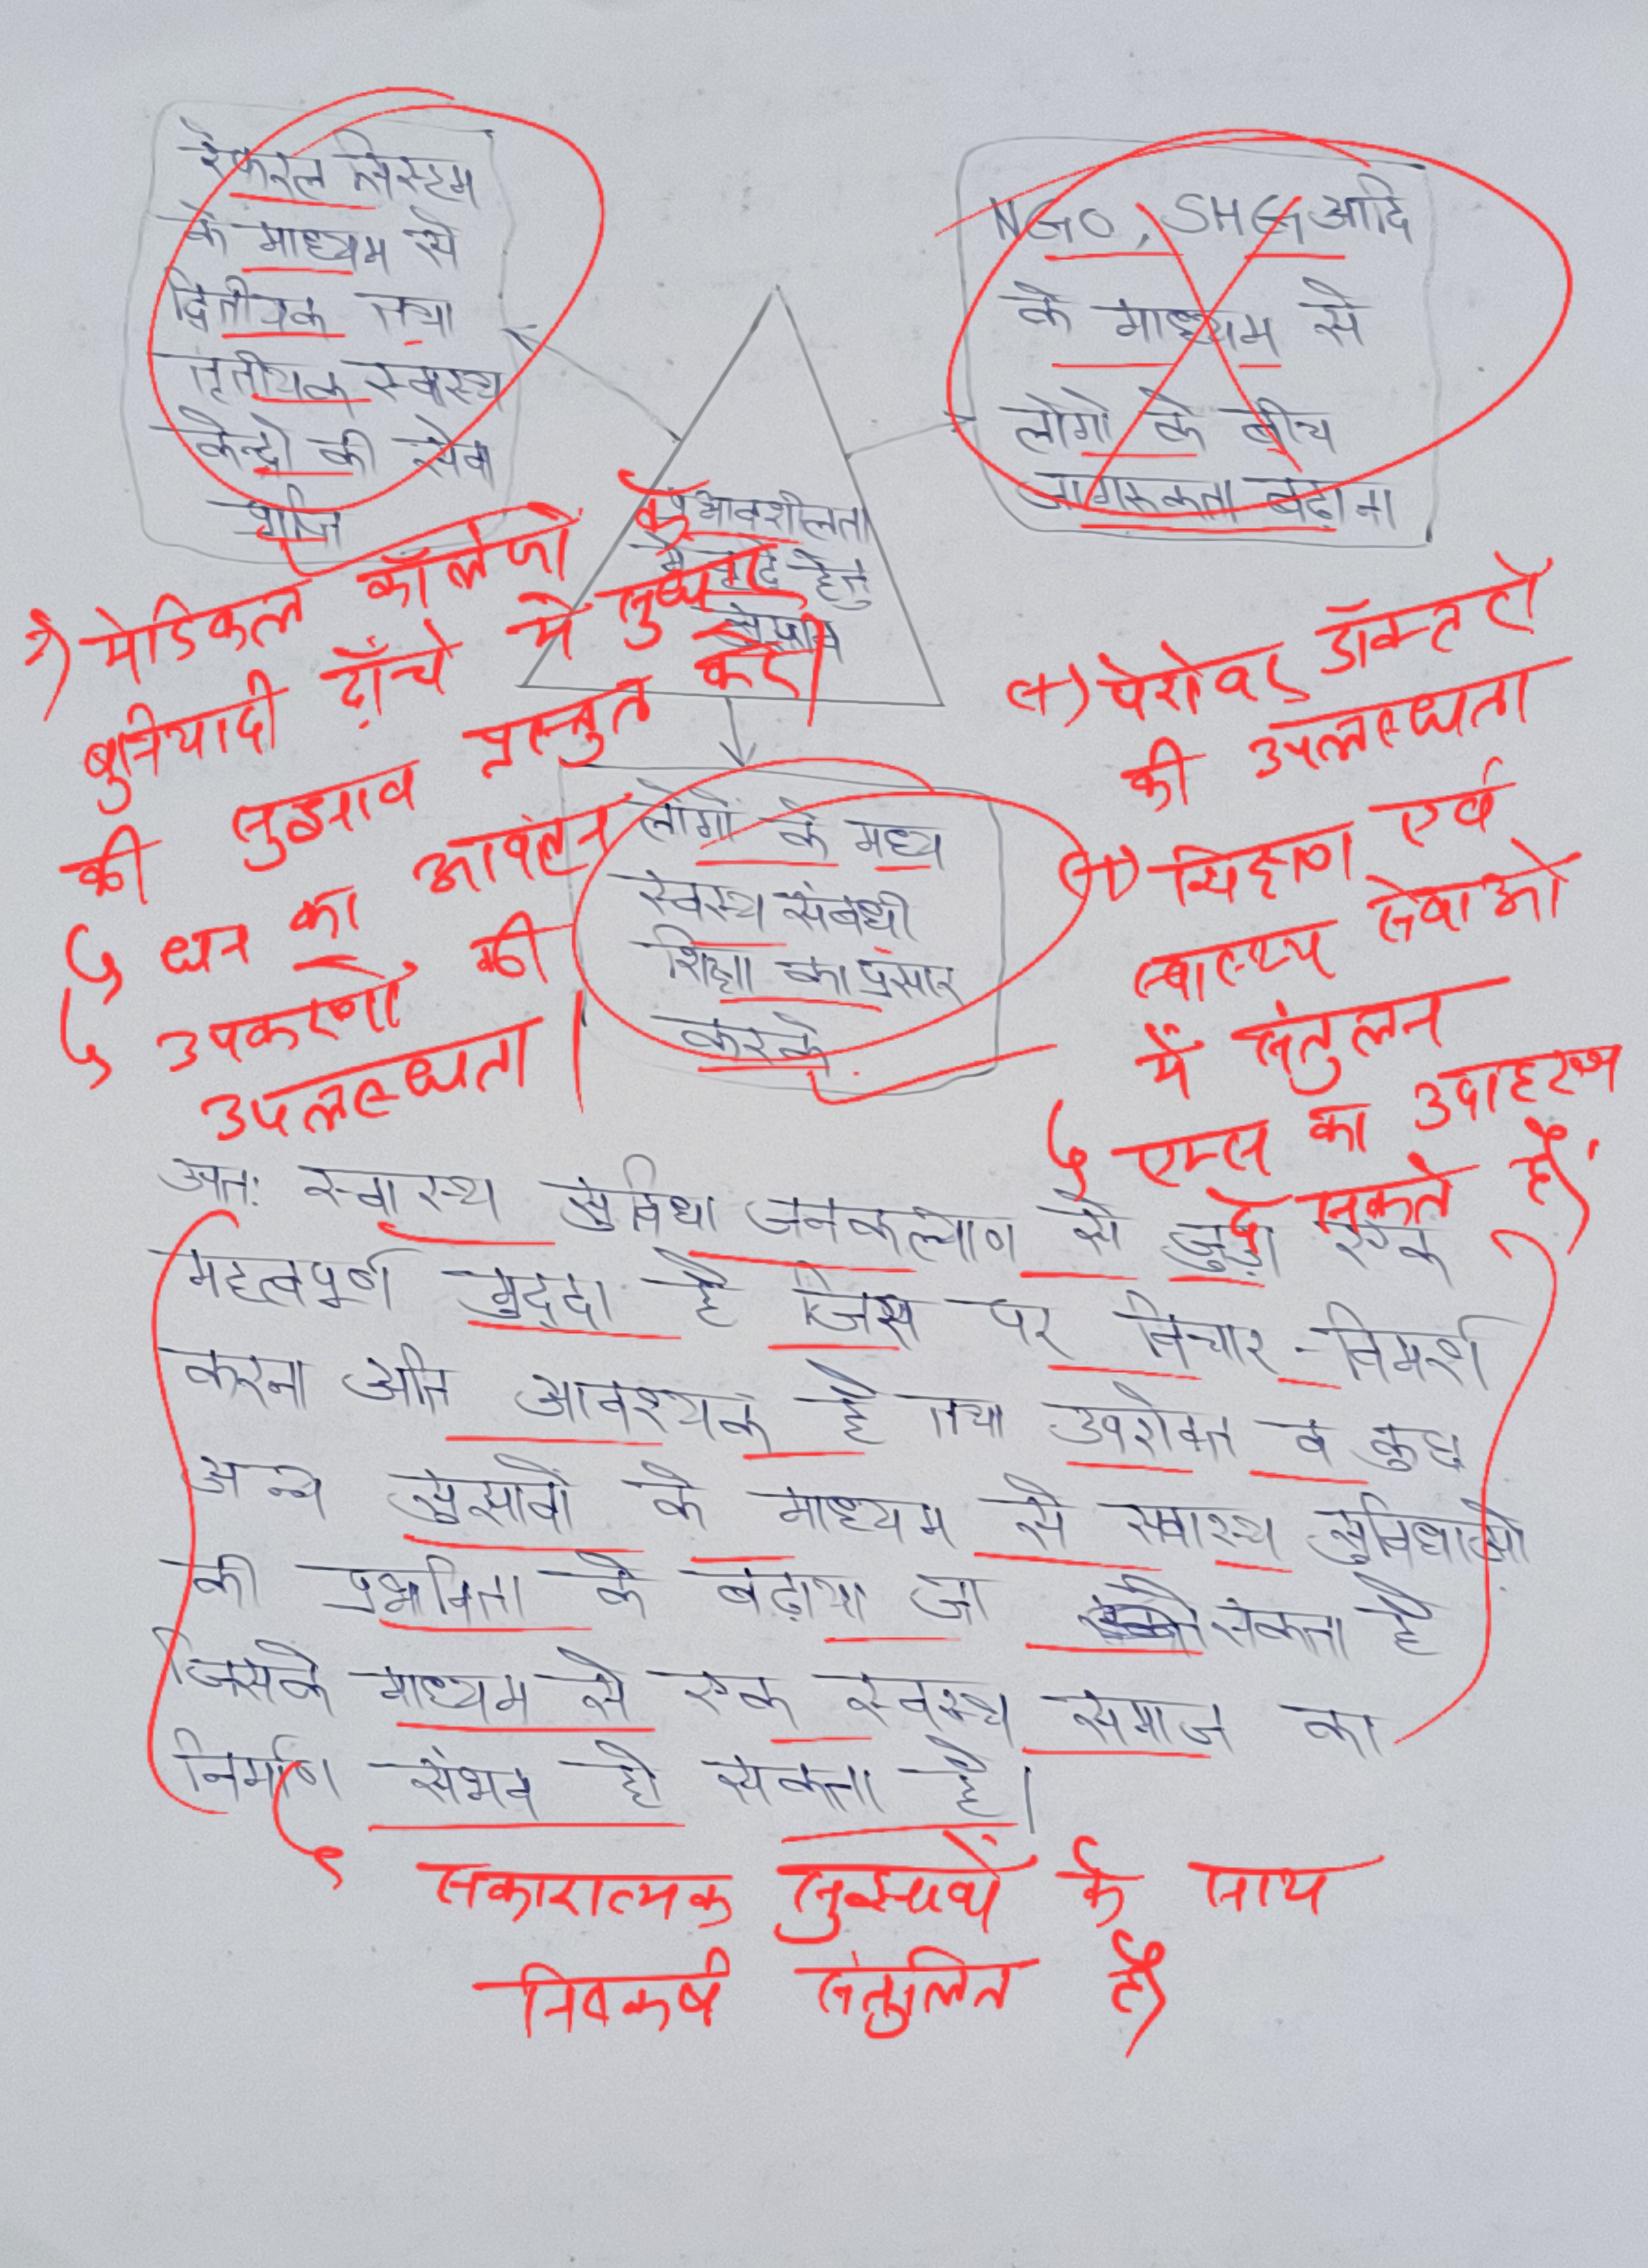 रेफरल सिस्टम
के माध्यम से
द्वितीयक तथा
तृतीयक स्वास्थ्य
केन्द्रो की सेवा
NGO, SHG आदि
के माध्यम से
लोगो के बीच
जागरूकता बढ़ाना
में वृद्धि हेतु
सुझाव
लोगों के मध्य
स्वस्थ्य संबंधी
शिक्षा का प्रसार
करके
मेडिकल कॉलेजो के
बुनियादी ढाँचे में सुधार
की सुझाव प्रस्तुत करें।
धन का आवंटन
उपकरणों की
उपलब्धता।
(+) पेशेवर डॉक्टरों
की उपलब्धता
(+) शिक्षण एवं
स्वास्थ्य सेवाओं
में संतुलन
एम्स का उदाहरण
दे सकते हैं।
अतः स्वास्थ्य सुविधा जनकल्याण से जुड़ा एक
महत्वपूर्ण मुद्दा है जिस पर विचार-विमर्श
करना अति आवश्यक है तथा उपरोक्त व कुछ
अन्य सुसावों के माध्यम से स्वास्थ्य सुविधाओ
की प्रभाविता के बढ़ाया जा सकता है
जिसके माध्यम से एक स्वस्थ्य समाज का
निर्माण संभव हो सकता है।
सकारात्मक सुझावों के साथ
निष्कर्ष संतुलित है।